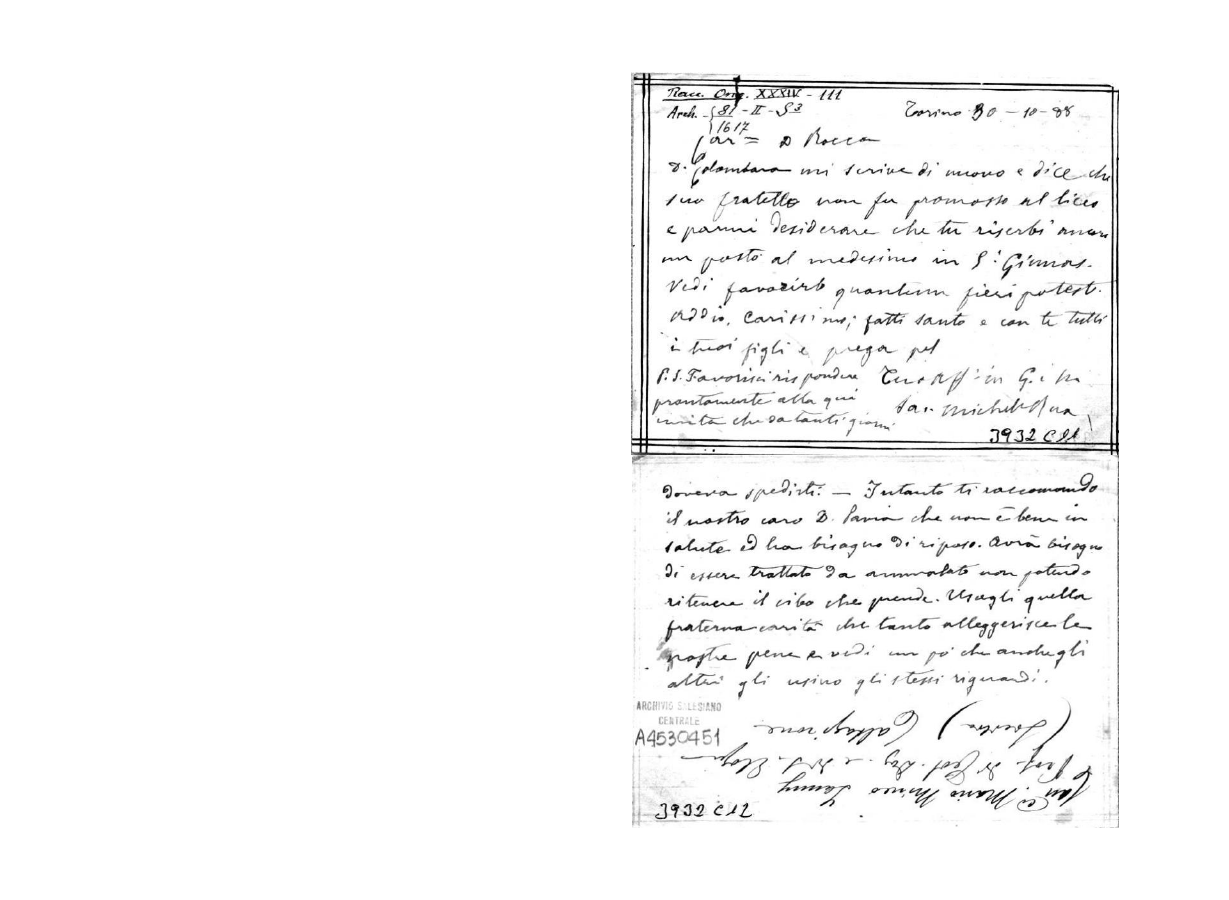 Racc. Orig. XXXIV - 111
Arch. 81 - II - S3
1617
Torino 30 - 10 - 88
Car = D Rocca
D. Colombara mi scrive di nuovo e dice che
suo fratello non fu promosso al liceo
e parmi desiderare che tu riserbi ancora
un posto al medesimo in 5ª Ginnas.
Vedi favorirlo quantum fieri potest.
Addio, Carissimo; fatti santo e con te tutti
i tuoi figli e prega pel
Tuo aff in G. e M.
Sac. Michele Rua
P.S. Favorisci rispondere
prontamente alla qui
unita che da tanti giorni
3932 C 11
doveva spedirti. — Intanto ti raccomando
il nostro caro D. Pavia che non è bene in
salute ed ha bisogno di riposo. Avrà bisogno
di essere trattato da ammalato non potendo
ritenere il cibo che prende. Usagli quella
fraterna carità che tanto alleggerisce le
nostre pene e vedi un po' che anche gli
altri gli usino gli stessi riguardi.
ARCHIVIO SALESIANO
CENTRALE
A4530451
Mario Mineo
Prof. di
Caltagirone
3932 C 12